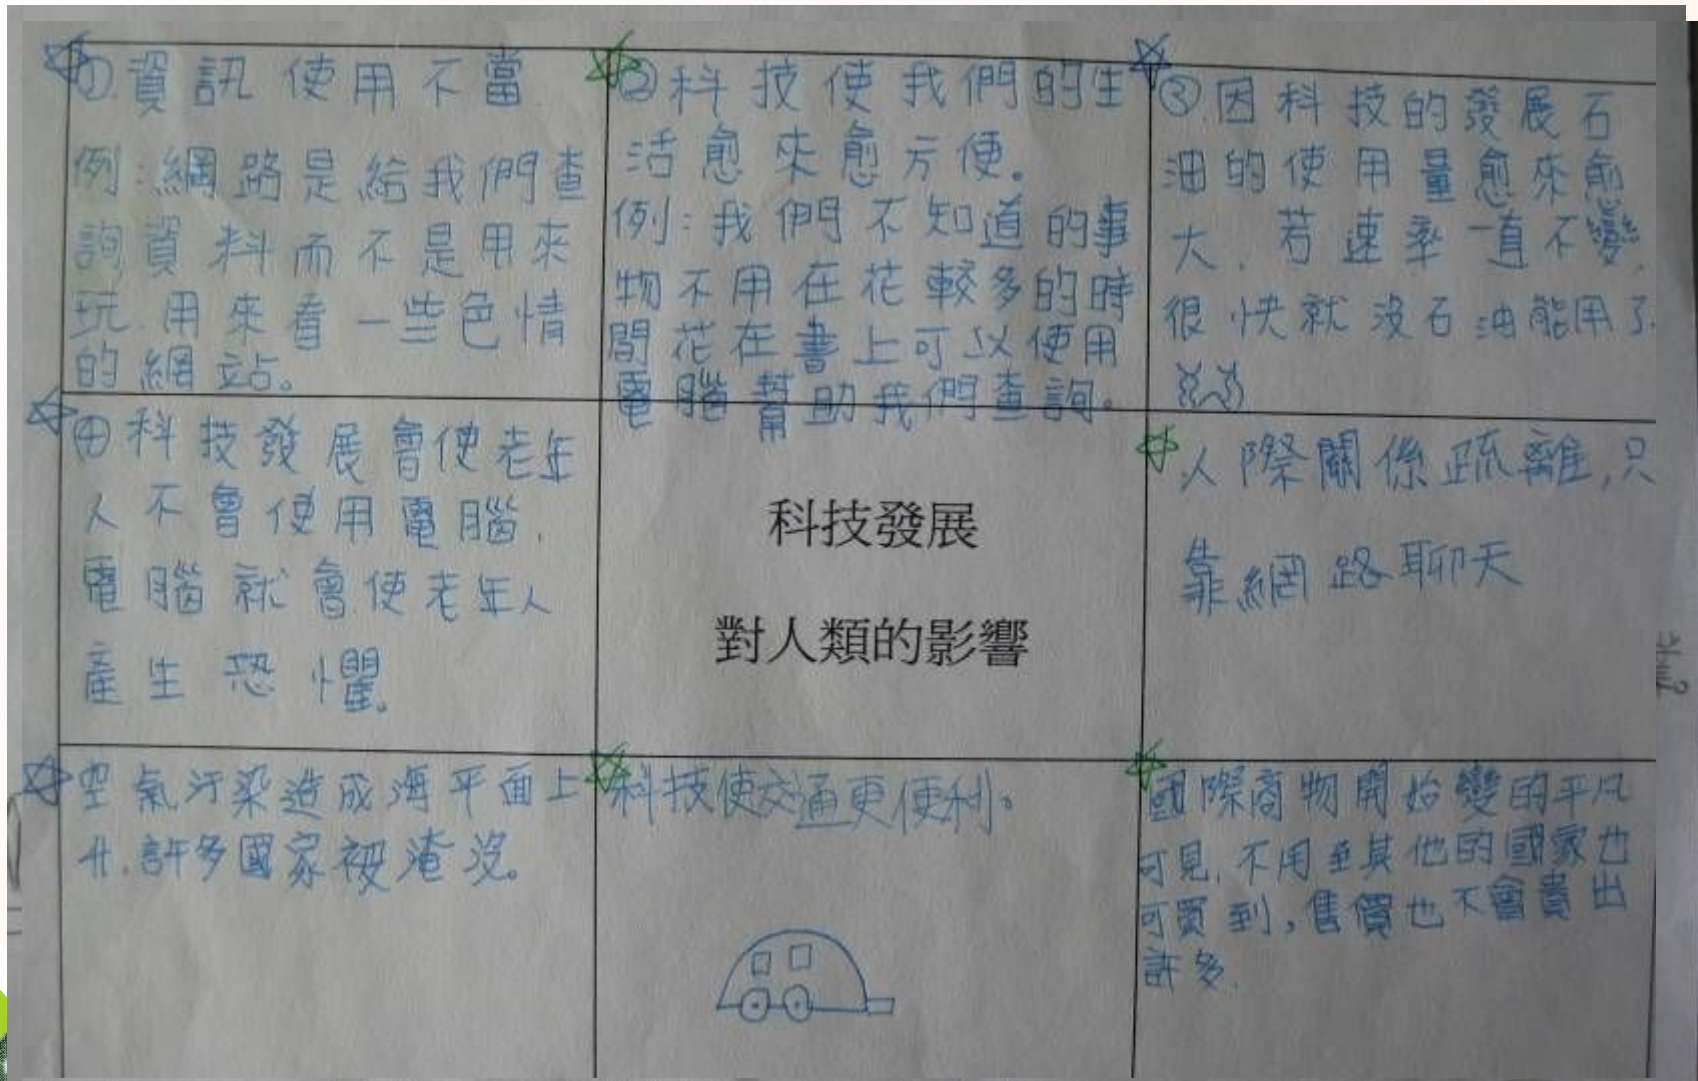 ①資訊使用不當
例:網路是給我們查
詢資料而不是用來
玩.用來看一些色情
的網站。
②科技使我們的生
活愈來愈方便。
例:我們不知道的事
物不用在花較多的時
間花在書上可以使用
電腦幫助我們查詢。
③.因科技的發展石
油的使用量愈來愈
大.若速率一直不變.
很快就沒石油能用了.
④科技發展會使老年
人不會使用電腦.
電腦就會使老年人
產生恐懼。
科技發展
對人類的影響
人際關係疏離,只
靠網路聊天
空氣汙染造成海平面上
升.許多國家被淹沒。
科技使交通更便利。
國際商物開始變的平凡
可見.不用至其他的國家也
可買到,售價也不會貴出
許多.